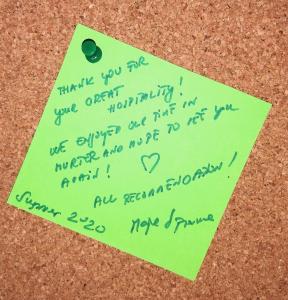 THANK YOU FOR
your GREAT HOSPITALITY!
WE ENJOYED OUR TIME IN
MURTER AND HOPE TO SEE YOU
AGAIN! ♡
ALL RECOMMENDATION!
Summer 2020